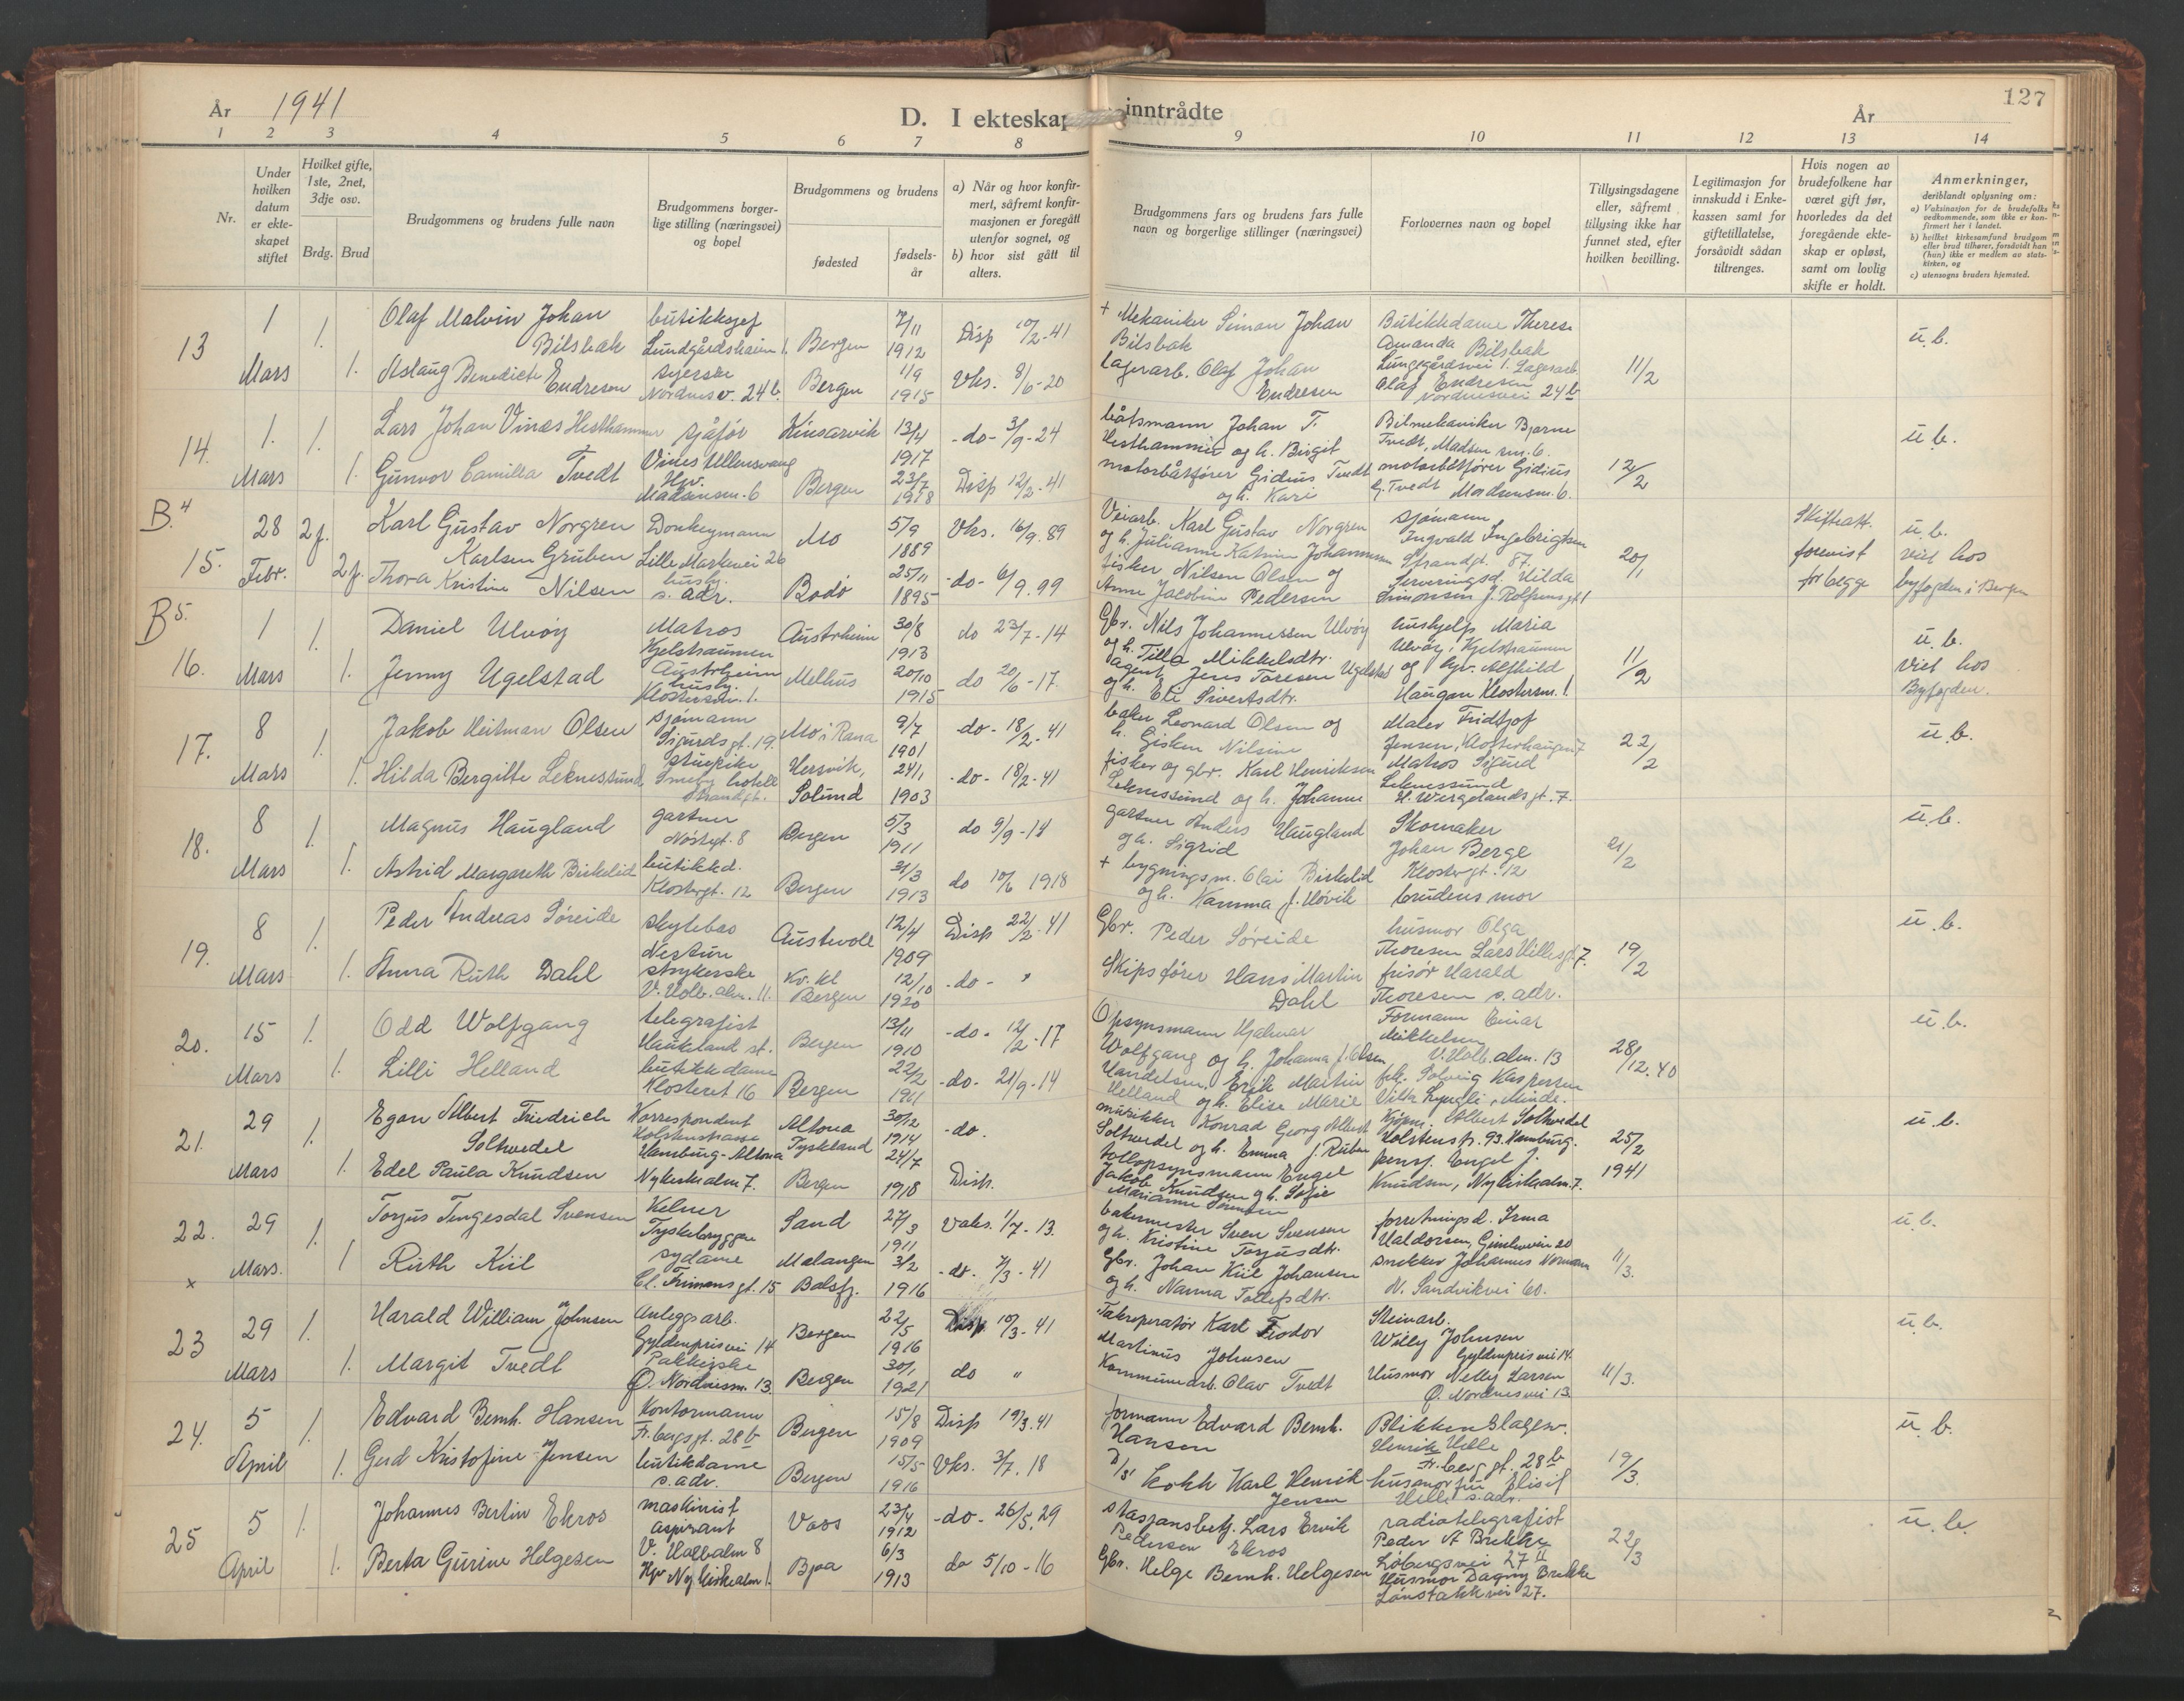 År 1941
D. I ekteskap inntrådte
År
127
1 2 3 4 5 6 7 8 9 10 11 12 13 14
Nr.
Under hvilken datum er ekteskapet stiftet
Hvilket gifte, 1ste, 2net, 3dje osv.
Brdg. Brud
Brudgommens og brudens fulle navn
Brudgommens borgerlige stilling (næringsvei) og bopel
Brudgommens og brudens
fødested
fødselsår
a) Når og hvor konfirmert, såfremt konfirmasjonen er foregått utenfor sognet, og
b) hvor sist gått til alters.
Brudgommens fars og brudens fars fulle navn og borgerlige stillinger (næringsvei)
Forlovernes navn og bopel
Tillysingsdagene eller, såfremt tillysing ikke har funnet sted, efter hvilken bevilling.
Legitimasjon for innskudd i Enkekassen samt for giftetillatelse, forsåvidt sådan tiltrenges.
Hvis nogen av brudefolkene har været gift før, hvorledes da det foregående ekteskap er opløst, samt om lovlig skifte er holdt.
Anmerkninger,
deriblandt oplysning om:
a) Vaksinasjon for de brudefolks vedkommende, som ikke er konfirmert her i landet.
b) hvilket kirkesamfund brudgom eller brud tilhører, forsåvidt han (hun) ikke er medlem av statskirken, og
c) utensogns bruders hjemsted.
13 1 Mars 1. 1.
Olaf Malvin Johan Bilsbak
butikksjef
Bergen 7/11 1912 Disp 10/2-41
Aslaug Benedicte Endresen
syerske Nordnesv. 24b.
Bergen 1/9 1915 Vks. 8/6-20
+ Mekaniker Simon Johan Bilsbak
lagerarb. Olaf Johan Endresen
Butikkdame Therese Amanda Bilsbak
Lungegårdsvei 1. Lagerarb.
Olaf Endresen Nordnesvei 24b
11/2
u.b.
14. 1. Mars 1. 1.
Lars Johan Vines Hesthammer
sjåfør Vines Ullensvang
Kinsarvik 13/4 1917 -do- 3/9-24
Gunvor Camilla Tvedt
Hgv. Madsensm. 6
Bergen 23/7 1918 Disp 12/2-41
båtsmann Johan T. Hesthammer og h. Birgit
motorbåtfører Gidius Tvedt og h. Kari
Bilmekaniker Bjarne Tvedt, Madsen sm. 6.
motorbåtfører Gidius G. Tvedt Madsensm. 6.
12/2
u.b.
B.4
15. 28 Febr. 2g. 2g.
Karl Gustav Norgren Karlsen Gruben
Donkeymann Lille Markevei 26
Mo 5/9 1889 Vks. 16/9.89
Thora Kristine Nilsen
husby. s. adr.
Bodø 25/11 1895 -do- 6/9.99
Veiarb. Karl Gustav Norgren
og h. Julianne Katrine Johannesen
fisker Nilsen Olsen og
Anne Jacobine Pedersen
sjømann Ingvald Ingebrigtsen Strandgt. 87.
Serveringsd. Hilda Simonsen J. Rolfsensgt 1
20/1
Skifteatt. forevist for begge
u.b.
viet hos byfogden i Bergen
B5.
16. 1 Mars 1. 1.
Daniel Ulvøy
Matros Kjelstraumen Austrheim
Austrheim 30/8 1913 do 23/7-14
Jenny Ugelstad
husby. Klostersm. 1.
Melhus 20/10 1915 do 20/6-17.
Gbr. Nils Johannessen Ulvøy
og h. Tilla Mikkelsdtr.
agent Jens Toresen Ugelstad
og h. Eli Sivertsdtr.
hushjelp Maria Ulvøy, Kjelstraumen
og hgv. Alfhild Haugan Klostersm. 1.
11/2
u.b.
Viet hos Byfogden.
17. 8 Mars 1. 1.
Jakob Heitman Olsen
sjømann Sigurdsgt. 19.
Mo i Rana 9/7 1901 -do- 18/2-41
Hilda Bergitte Leknessund
stuepike Smeby hotell Strandgt.
Hersvik, Solund 24/1 1903 -do- 18/2-41
baker Leonard Olsen og h. Gisken Nilsine
fisker og gbr. Karl Henriksen Leknessund og h. Johanne
Maler Fridtjof Jensen, Klosterhaugen 7
Matros Sigurd Leknessund H. Wergelandsgt. 7.
22/2
u.b.
18. 8 Mars 1. 1.
Magnus Haugland
gartner Nøstegt. 8
Bergen 5/3 1911 do 9/9-14
Astrid Margareth Birkelid
butikkd. Klostergt. 12
Bergen 31/3 1913 do 10/6 1918
gartner Anders Haugland og h. Sigrid
+ bygningsm. Olai Birkelid og h. Kamma f. Høvik
Skomaker Johan Berge Klostergt. 12
brudens mor
21/2
u.b.
19. 8 Mars 1. 1.
Peder Andreas Søreide
Nestun
Austevoll 12/4 1909 Disp 22/2-41
Anna Ruth Dahl
strykerske V. Holb. alm. 11.
Kv. kl Bergen 12/10 1920 -do- "
Gbr. Peder Søreide
Skipsfører Hans Martin Dahl
husmor Olga Thoresen Lars Hillesgt 7.
frisør Harald Thoresen s. adr.
19/2
u.b.
20. 15 Mars 1. 1.
Odd Wolfgang
telegrafist Haukeland st.
Bergen 13/11 1910 -do- 12/2-17
Lilli Helland
butikkdame Klosteret 16
Bergen 22/2 1911 -do- 21/9-14
Opsynsmann Hjalmar Wolfgang og h. Johanna f. Olsen
Handelsm. Erik Martin Helland og h. Elise Marie
Formann Einar Mikkelsen V. Holb. alm. 13
frk. Solveig Kaspersen Villa Lyngli, Minde.
28/12.40
u.b.
21. 29 Mars 1. 1.
Egon Albert Friedrich Soltwedel
Korrespondent Holstenstrasse Hamburg-Altona
Altona Tyskland 30/12 1914 -do.
Edel Paula Knudsen
Nykirkealm 7.
Bergen 24/7 1918 Disp.
musikker Konrad Georg Albert
Soltwedel og h. Emma f. Ruben
tollopsynsmann Engel
Jakob Knudsen og h. Sofie Marianne Sørensen
Kjøpm. Albert Soltwedel Holstenstr. 93. Hamburg.
pensj. Engel J. Knudsen, Nykirkealm. 7.
25/2 1941
u.b.
22. 29 Mars. 1. 1
x
Torjus Tengesdal Svensen
Kelner Tyskebryggen
Sand 27/3 1911 Vaks. 1/7-13.
Ruth Kiil
sydame Cl. Frimansgt. 15
Malangen Balsfj. 3/2 1916 -do. 7/3-41
bakermester Sven Svensen
og h. Kristine Torjusdtr.
Gbr. Johan Kiil Johansen
og h. Nanna Tollefsdtr.
forretningsd. Irma Haldorsen, Gimleveien 20
snekker Johannes Normann N. Sandvikvei 60.
11/3.
u.b.
23 29 Mars 1. 1.
Harald William Johnsen
Anleggsarb. Gyldenprisvei 14
Bergen 22/5 1916 Disp 10/3-41
Margit Tvedt
Ø. Nordnesm. 13.
Bergen 30/1 1921 do "
Karl Teodor Martinus Johnsen
Kommunearb. Olav Tvedt
Steinarb. Willy Johnsen Gyldenprisvei 14.
Husmor Nelly Larsen Ø. Nordnesvei 13.
11/3.
u.b.
24. 5 April 1. 1.
Edvard Bernh. Hansen
Kontormann Fr. bergsgt. 28b
Bergen 15/8 1909 Disp 19/3.41
Gerd Kristofine Jensen
butikdame s. adr.
Bergen 15/5 1916 Vks. 3/7.18
formann Edvard Bernh. Hansen
Kokk Karl Henrik Jensen
Blikkenslager Henrik Hille Fr. berggt. 28b
husmor fru Elisif Hille s. adr.
19/3.
u.b.
25 5 April 1. 1.
Johannes Bertin Ekros
maskinist aspirant V. Holbalm 8
Voss 23/4 1912 -do- 26/5.29
Berta Gurine Helgesen
Hgv Nykirkealm 1.
Bjoa 6/3 1913 do 5/10-16
stasjonsbetj. Lars Ervik Pedersen Ekros
Gbr. Helge Bernh. Helgesen
radiotelegrafist Peder A Brekke
Husmor Dagny Brekke
22/3
u.b.